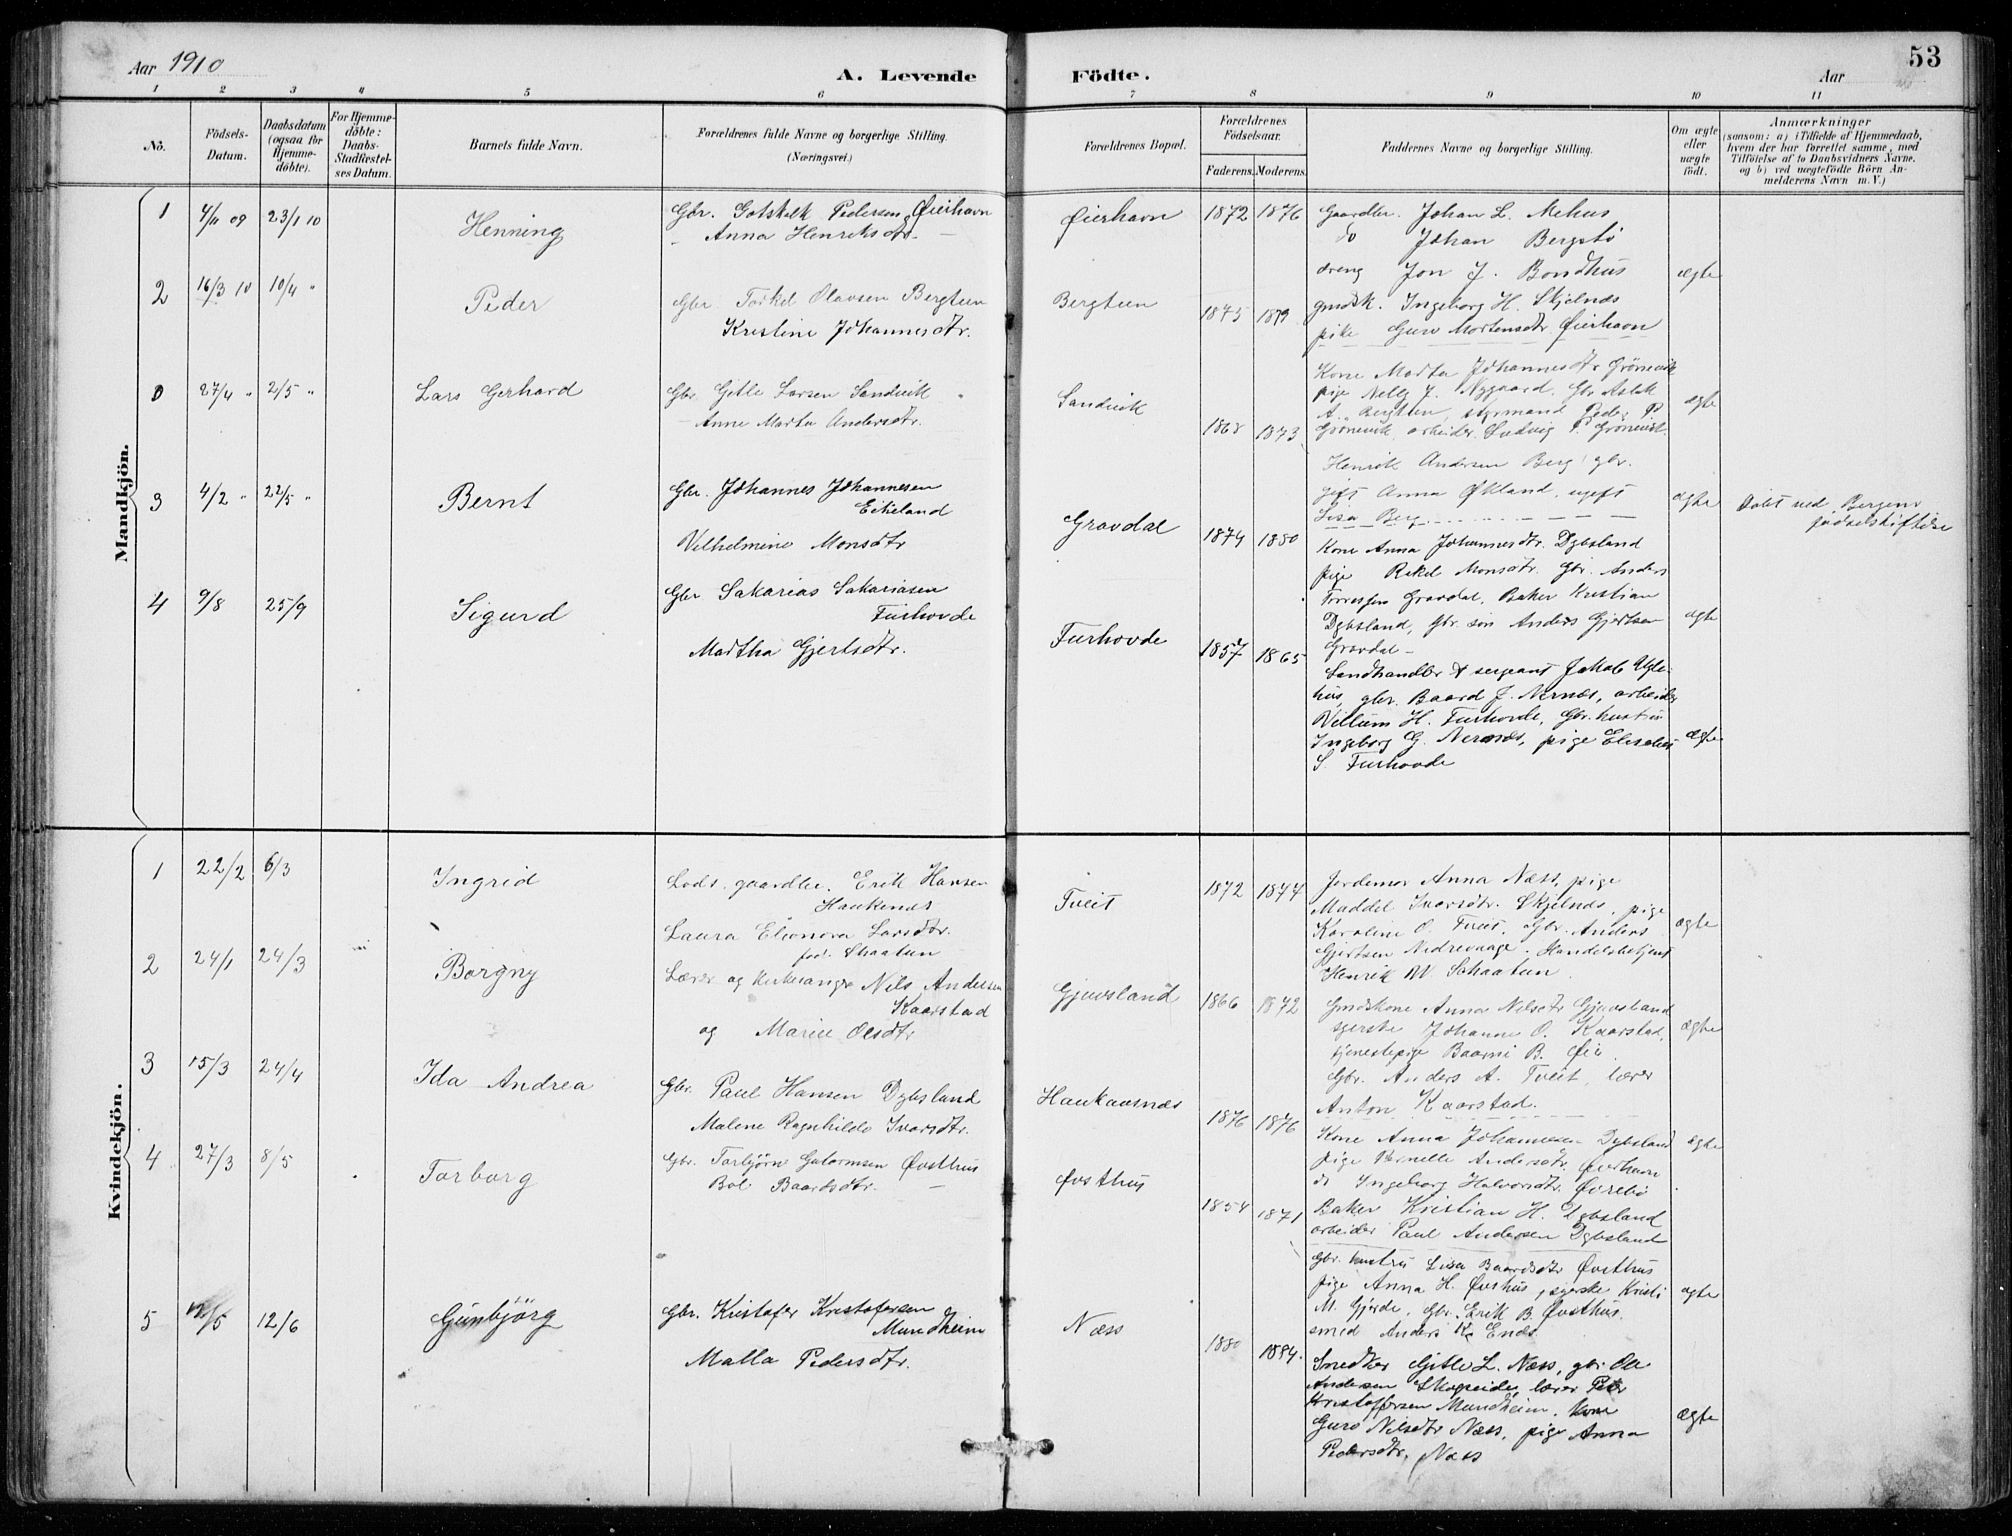 Aar 1910
A. Levende Födte.
Aar
53
1 2 3 4 5 6 7 8 9 10 11
No.
Födsels-Datum.
Daabsdatum (ogsaa for Hjemme-döbte).
For Hjemme-döbte: Daabs-Stadfæstel-ses Datum.
Barnets fulde Navn.
Forældrenes fulde Navne og borgerlige Stilling.
(Næringsvei.)
Forældrenes Bopæl.
Forældrenes Födselsaar.
Faderens. Moderens.
Faddernes Navne og borgerlige Stilling.
Om ægte eller uægte födt.
Anmærkninger
(saasom: a) i Tilfælde af Hjemmedaab,
hvem der har forrettet samme, med
Tilföielse af to Daabsvidners Navne.
og b) ved uægtefödte Börn An-
melderens Navn m. V.)
Mandkjön.
1 4/11 09 23/1 10 Henning
Gbr. Gotskalk Pedersen Øierhavn
Anna Henriksdtr.
Øierhavn 1872 1876
Gaardbr. Johan L. Mehus
do Johan Bergstö
dreng Jon J. Bondhus
gmdsk. Ingeborg H. Skjelnæs
pike Guro Mortensdtr. Øierhavn
ægte
2 16/3 10 10/4 " Peder
Gbr Torkel Olavsen Bergtun
Kristine Johannesdtr.
Bergtun 1875 1879
Kone Marta Johannesdtr Grönevik
pige Nelly J. Nygaard. Gbr Aslak
A. Bergtun, styrmand Peder P.
Grönevik, arbeider Ludvig P. Grönevik.
ægte
0 27/4 " 2/5 " Lars Gerhard
Gbr Gitle Larsen Sandvik
Anne Marta Andersdtr.
Sandvik 1868 1873
Henrik Andersen Berg gbr.
gift Anna Økland, ugift
Lisa Berg
ægte
Döbt ved Bergens
födselstiftelse
3 4/2 " 22/5 " Bernt
Gbr. Johannes Johannesen
Eikeland
Vilhelmine Monsdtr
Gravdal 1874 1880
Kone Anna Johannesdtr. Dybsland
pige Rakel Monsdtr. Gbr. Anders
Gravdal, Baker Kristian
Dybsland, Gbr. sön Anders Gjertsen
Gravdal
ægte
4 9/8 25/9 Sigurd
Gbr Sakarias Sakariasen
Furhovde
Martha Gjertsdtr.
Furhovde 1857 1865
Landhandler & sergeant Jakob Ugle-
hus, gbr. Baard J. Nernæs, arbeider
Villum H. Furhovde, Gbr. hustru
Ingeborg G. Nernæs, pige Elisabet
S. Furhovde
ægte
Kvindekjön.
1 22/2 6/3 Ingrid
Lods. gaardbr. Erik Hansen
Haukenæs
Laura Eleonora Larsdtr.
föd. Skaatun
Tveit 1872 1874
Jordemor Anna Næss, pige
Maddel Ivarsdtr. Skjelnæs, pige
Karoline O. Tveit. Gbr. Anders
Gjertsen Nedrevaage. Handelsbetjent
Henrik M. Schaatun.
ægte
2 24/1 24/3 Borgny
Lærer og kirkesanger Nils Andersen
Kaarstad
og Marie Olsdtr
Gjuvsland 1866 1872
Gmdskone Anna Nilsdtr Gjuvsland
syerske Johanne O. Kaarstad,
tjenestepige Baarni B. Øie.
Gbr. Anders A. Tveit, lærer
Anton Kaarstad.
ægte
3 15/3 24/4 Ida Andrea
Gbr. Paul Hansen Dybsland
Malene Ragnhilde Ivarsdtr.
Haukaasnæs 1876 1876
Kone Anna Johannesen Dybsland
pige Pernelle Andersdtr. Øierhavn
do Ingeborg Halvorsdtr. Øvrebö
Baker Kristian H. Dybsland
arbeider Paul Andersen Dybsland
ægte
4 27/3 8/5 Torborg
Gbr. Torbjörn Guttormsen Øvsthus
Bol Baardsdtr.
Øvsthus 1854 1871
Gbr. hustru Lisa Baardsdtr Øvsthus
pige Anna H. Øvsthus, syerske Kristi
M. Gjerde, Gbr. Erik B. Øvsthus
smed Anders K. Enæs.
ægte
5 12/5 12/6 Gunbjörg
Gbr. Kristofer Kristofersen
Mundheim
Malla Pedersdtr.
Næss 1880 1884.
Snedker Gitle L. Næss, gbr. Ole
Andersen Skogseide, lærer Peter
Kristoffersen Mundheim, kone
Guro Nilsdtr Næss, pige Anna
Pedersdtr. Næss
ægte